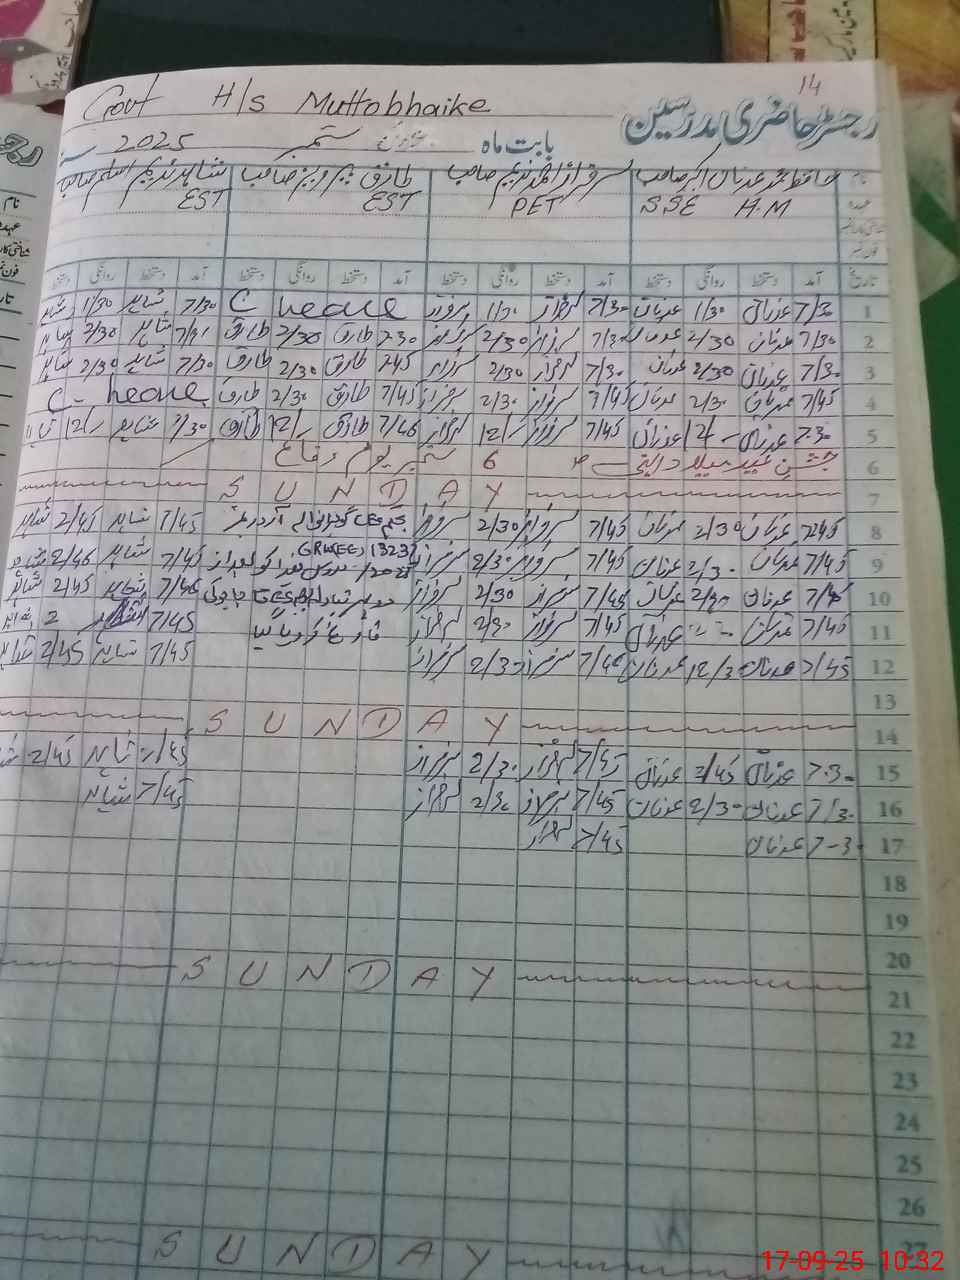 14
Govt H/s Muttobhaike
رجسٹر حاضری مدرسین
بابت ماہ ستمبر 2025
نام حافظ محمد عدنان اکبر صاحب سرفراز احمد ندیم صاحب طارق پرویز صاحب شاہد ندیم اسلم صاحب
عہدہ SSE H.M PET EST EST
فون نمبر
تاریخ آمد دستخط روانگی دستخط آمد دستخط روانگی دستخط آمد دستخط روانگی دستخط آمد دستخط روانگی دستخط
1 7/30 عدنان 1/30 عدنان 7/30 سرفراز 1/30 سرفراز C heave 7/30 شاہد 1/30 شاہد
2 7/30 عدنان 2/30 عدنان 7/30 سرفراز 2/30 سرفراز 7.30 طارق 2/30 طارق شاہد 2/30 شاہد
3 7/30 عدنان 2/30 عدنان 7/30 سرفراز 2/30 سرفراز 745 طارق 2/30 طارق 7/30 شاہد 2/30 شاہد
4 7/45 عدنان 2/30 عدنان 7/45 سرفراز 2/30 سرفراز 7/45 طارق 2/30 طارق C- heave
5 7.30 عدنان 12/- عدنان 7/45 سرفراز 12/- سرفراز 7/46 طارق 12/- طارق 7/30 شاہد 12/- شاہد
6 جشن عید میلاد النبی 6 ستمبر یوم دفاع
7 SUNDAY
8 7/45 عدنان 2/30 عدنان 7/45 سرفراز 2/30 سرفراز بحکم CEO گوجرانوالہ آرڈر نمبر 7/45 شاہد 2/45 شاہد
9 7/45 عدنان 2/30 عدنان 7/45 سرفراز 2/30 سرفراز GRW(EE) 13237 7/45 شاہد 2/46 شاہد
10 7/45 عدنان 2/30 عدنان 7/45 سرفراز 2/30 سرفراز 7/46 شاہد 2/45 شاہد
11 7/45 عدنان عدنان 7/45 سرفراز 2/30 سرفراز فارغ کر دیا گیا 7/45 2 شاہد
12 7/45 عدنان 12/30 عدنان 7/46 سرفراز 2/30 سرفراز 7/45 شاہد 2/45 شاہد
13
14 SUNDAY
15 7.30 عدنان 2/45 عدنان 7/45 سرفراز 2/30 سرفراز 7/45 شاہد 2/45
16 7/30 عدنان 2/30 عدنان 7/45 سرفراز 2/30 سرفراز 7/45 شاہد
17 7-30 عدنان 7/45 سرفراز
18
19
20
21 SUNDAY
22
23
24
25
26
27
SUNDAY
17-09-25 10:32